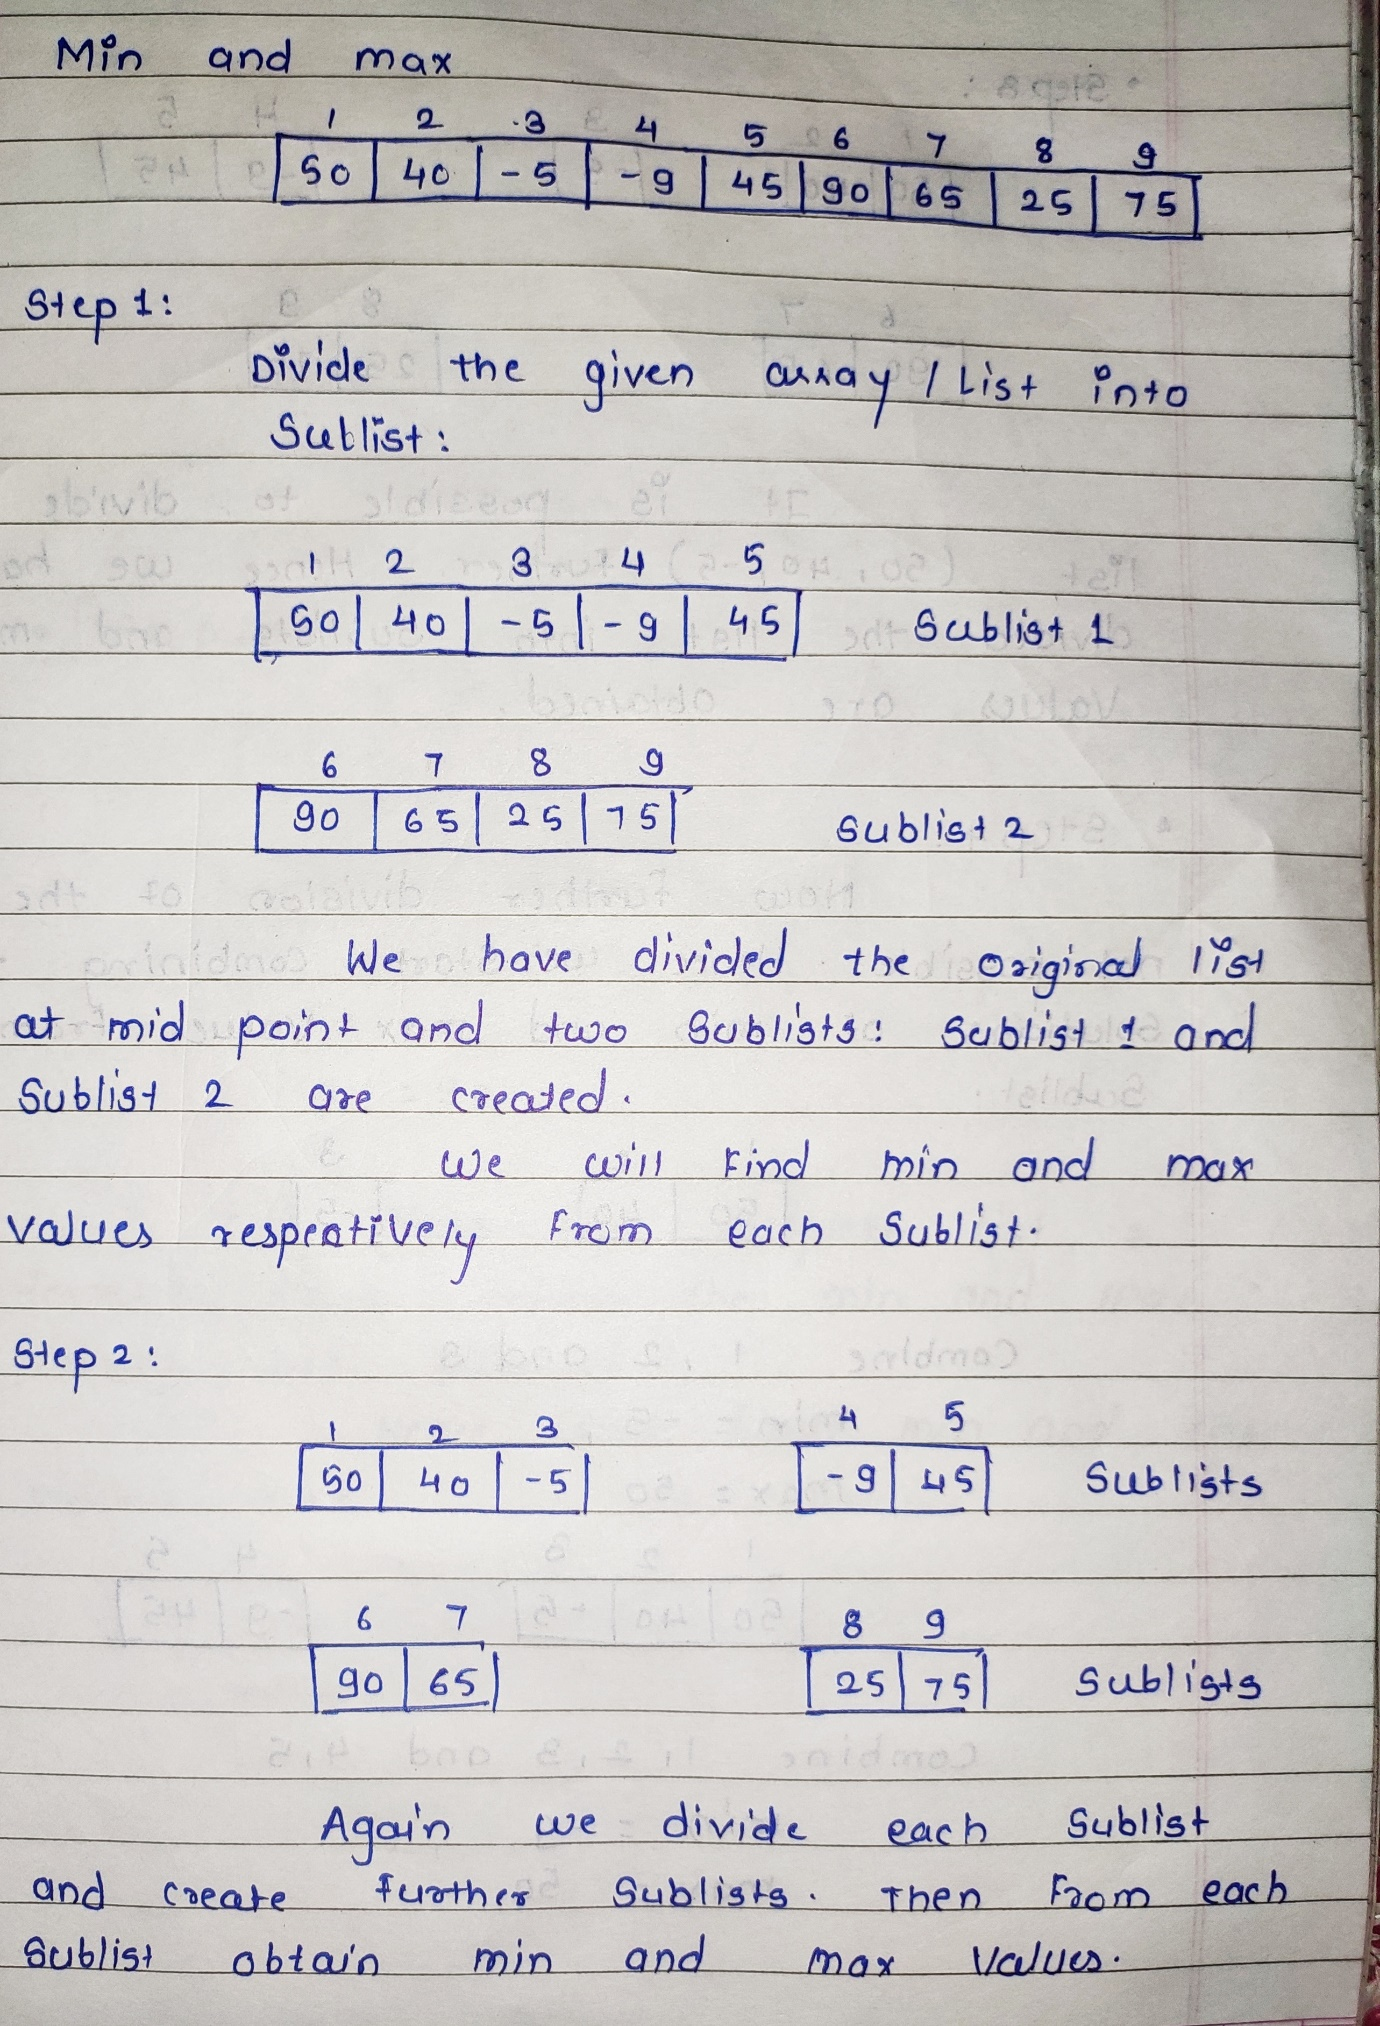 Min and max
1 2 3 4 5 6 7 8 9
50 40 -5 -9 45 90 65 25 75
Step 1:
Divide the given array / List into
Sublist:
1 2 3 4 5
50 40 -5 -9 45 Sublist 1
6 7 8 9
90 65 25 75 Sublist 2
We have divided the original list
at mid point and two Sublists: Sublist 1 and
Sublist 2 are created.
We will Find min and max
values respectively from each Sublist.
Step 2:
1 2 3 4 5
50 40 -5 -9 45 Sublists
6 7 8 9
90 65 25 75 Sublists
Again we divide each Sublist
and create further Sublists. Then From each
Sublist obtain min and max values.